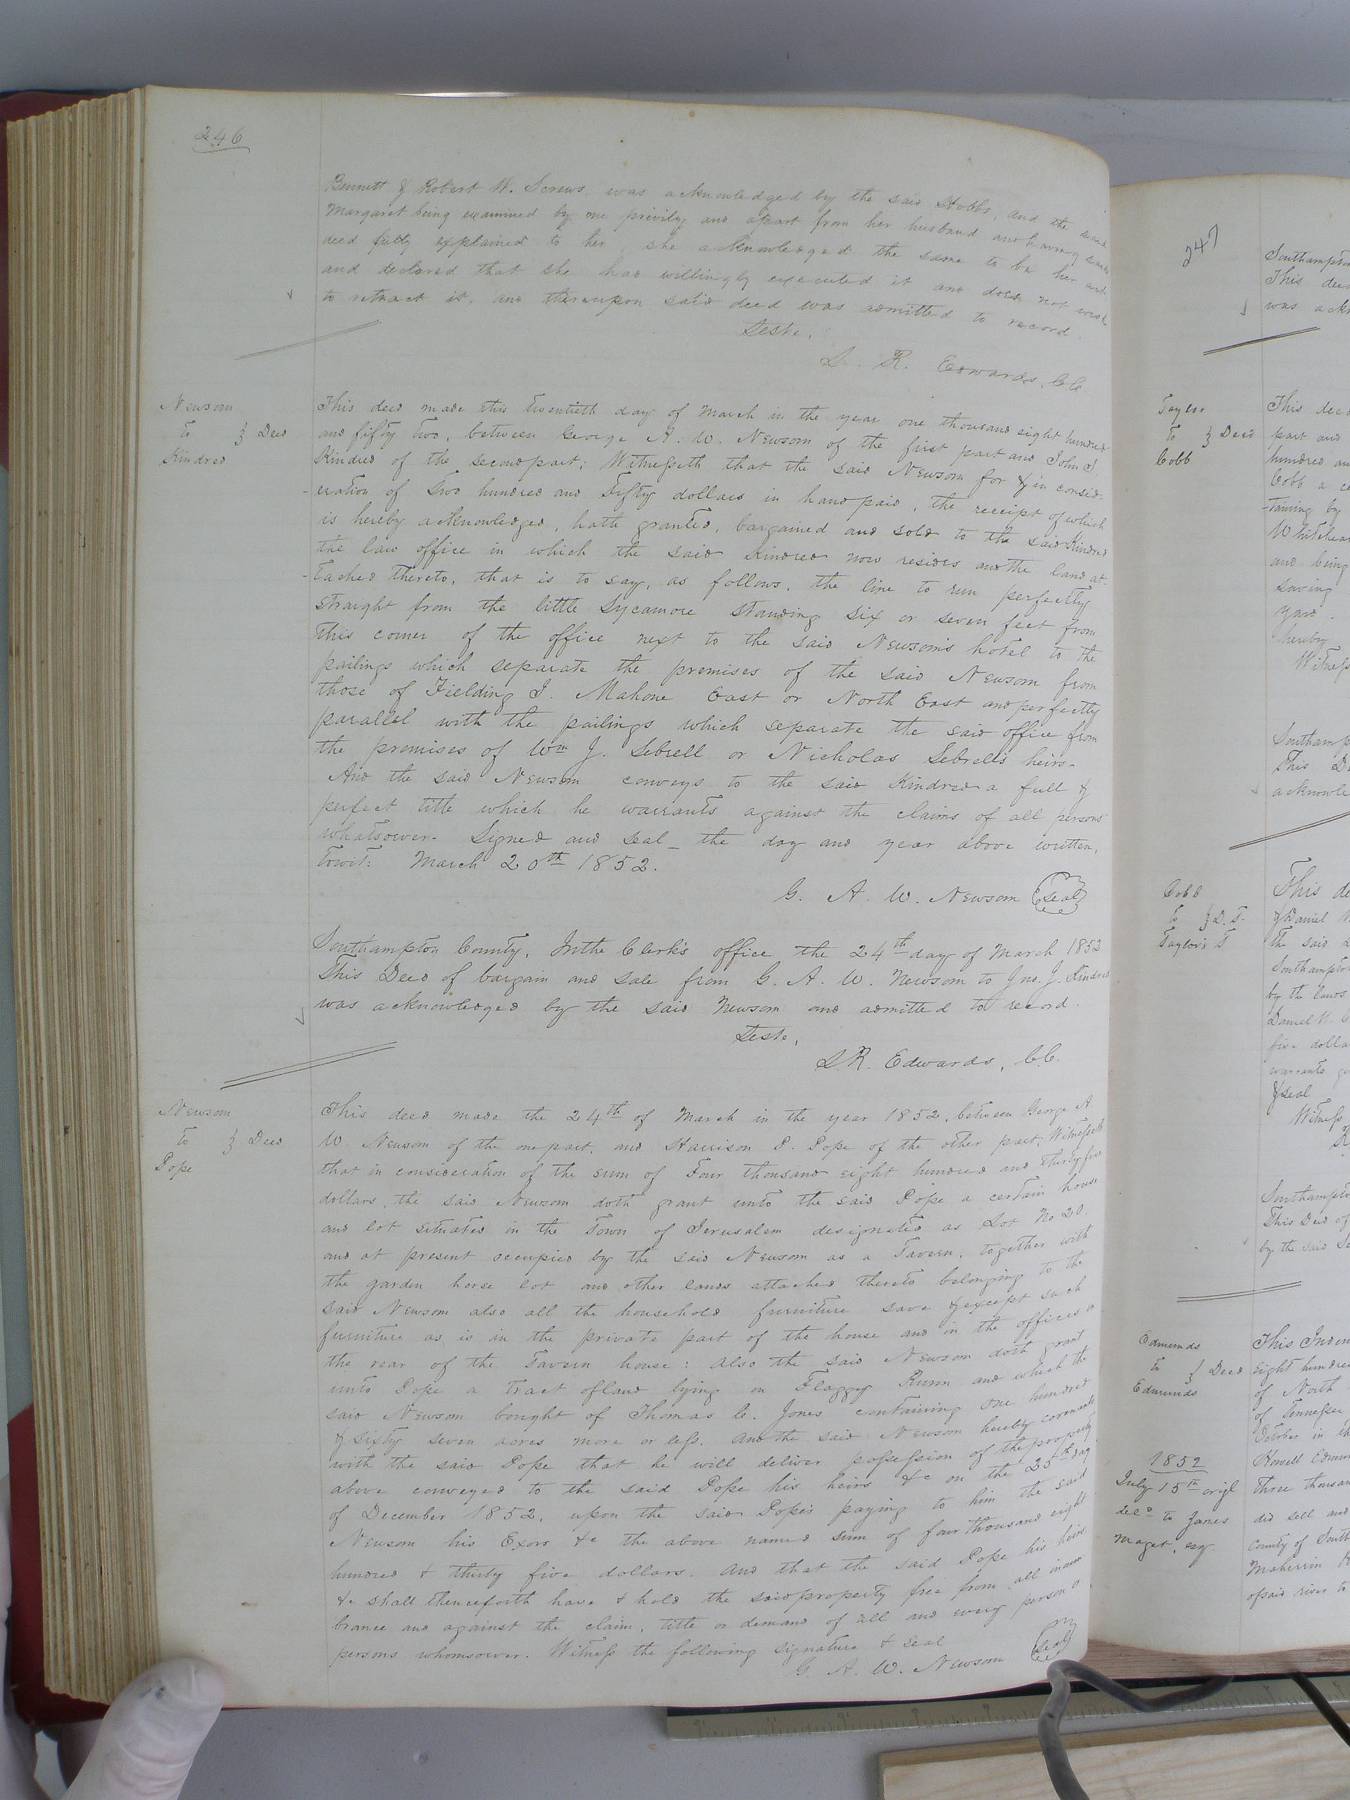 246
Bennett & Robert W. Screws was acknowledged by the said Hobbs, and the said
Margaret being examined by me privily and apart from her husband and having said
deed fully explained to her, she acknowledged the same to be her act
and declared that she had willingly executed it and does not wish
to retract it, and thereupon said deed was admitted to record.
Teste,
L. R. Edwards, C.C.
Newsom
to } Deed
Kindred
This deed made this twentieth day of March in the year one thousand eight hundred
and fifty two, between George A. W. Newsom of the first part and John J.
Kindred of the second part; Witnesseth that the said Newsom for & in consid-
-eration of two hundred and Fifty dollars in hand paid, the receipt of which
is hereby acknowledged, hath granted, bargained and sold to the said Kindred
the law office in which the said Kindred now resides and the land at-
-tached thereto, that is to say, as follows, the line to run perfectly
straight from the little sycamore standing six or seven feet from
this corner of the office next to the said Newsom's hotel to the
pailings which separate the premises of the said Newsom from
those of Fielding J. Mahone East or North East and perfectly
parallel with the pailings which separate the said office from
the premises of Wm J. Sebrell or Nicholas Sebrell's heirs-
And the said Newsom conveys to the said Kindred a full &
perfect title which he warrants against the claims of all persons
whatsoever- Signed and seal - the day and year above written,
towit: March 20th 1852.
G. A. W. Newsom Seal
Southampton County, In the Clerk's office the 24th day of March 1852
This Deed of bargain and sale from G. A. W. Newsom to Jno. J. Kindred
was acknowledged by the said Newsom and admitted to record.
Teste,
L R. Edwards, C.C.
Newsom
to } Deed
Pope
This deed made the 24th of March in the year 1852, between George A
W. Newsom of the one part, and Harrison P. Pope of the other part; Witnesseth
that in consideration of the sum of Four thousand eight hundred and thirty five
dollars, the said Newsom doth grant unto the said Pope a certain house
and lot situated in the Town of Jerusalem designated as Lot No 20.
and at present occupied by the said Newsom as a Tavern, together with
the garden horse lot and other lands attached thereto belonging to the
said Newsom also all the household furniture save & except such
furniture as is in the private part of the house and in the offices in
the rear of the Tavern house: also the said Newsom doth grant
unto Pope a tract of land lying on Flaggy Runn and which the
said Newsom bought of Thomas C. Jones containing one hundred
& sixty seven acres more or less. And the said Newsom hereby covenants
with the said Pope that he will deliver possession of the property
above conveyed to the said Pope his heirs &c on the 25th day
of December 1852, upon the said Pope's paying to him the said
Newsom his Exors &c the above named sum of four thousand eight
hundred & thirty five dollars. And that the said Pope his heirs
&c shall thenceforth have & hold the said property free from all incum
brance and against the claim, title or demand of all and every person or
persons whomsoever. Witness the following signature & seal
G. A. W. Newsom Seal
247
Southampton
This deed
was ackn
Taylor
to } Deed
Cobb
This deed
part and
hundred an
Cobb a ce
-taining by
Whitehea
and being
saving
yard.
hereby
Witness
Southamp
This De
acknowle
Cobb
to } D. T.
Taylor's T
This de
& Daniel
the said
Southampton
by the laws
Daniel
five dolla
warrants
& seal
Witness
Southampton
This Deed of
by the said
Edmunds
to } Deed
Edmunds
1852
July 15th origl
deld to James
Maget, esq
This Inden
eight hundred
of North
of Tennessee
October in th
Howell Edmun
three thousan
did sell and
County of South
Meherrin